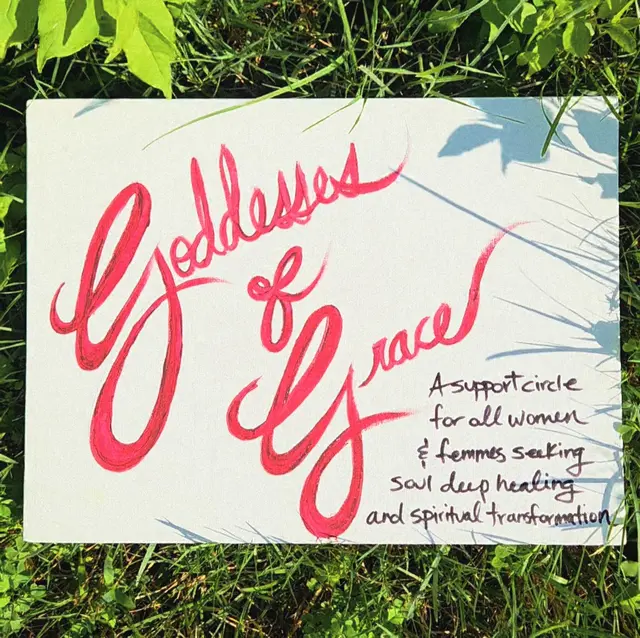 Goddesses
of
Grace
A support circle
for all women
& femmes seeking
soul deep healing
and spiritual transformation